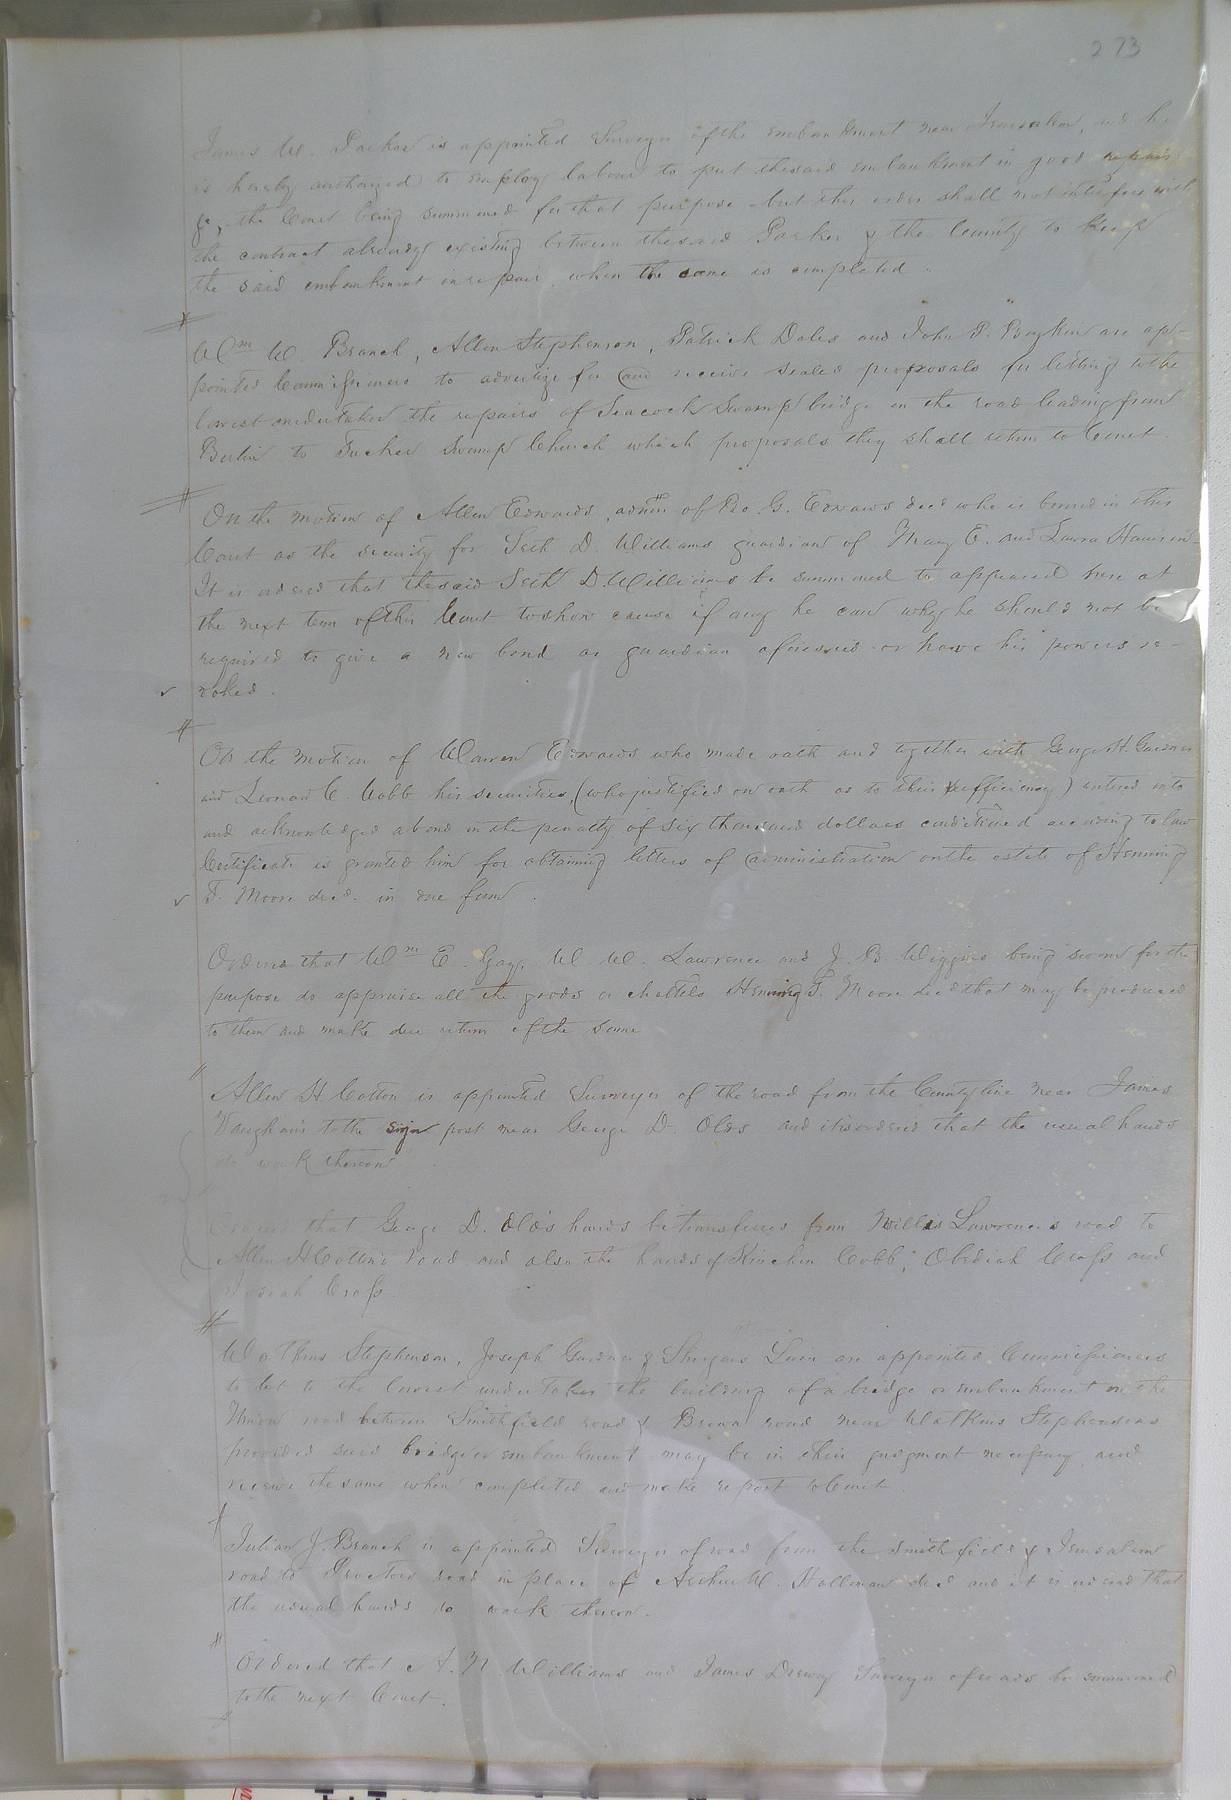 273
James W. Parker is appointed Surveyor of the embankment near Jerusalem, and he
is hereby authorized to employ labour to put the said embankment in good repair
&c, the Court being summoned for that purpose but this order shall not interfere with
the contract already existing between the said Parker & the County to keep
the said embankment in repair, when the same is completed.
Wm W. Branch, Allen Stephenson, Patrick Doles and John P. Boykin are ap-
pointed Commissioners to advertize for and receive sealed proposals for letting to the
lowest undertaker the repairs of Seacock Swamp bridge on the road leading from
Berlin to Tucker Swamp Church which proposals they shall return to Court.
On the motion of Allen Edwards, admr of Geo. G. Edwards decd who is bound in this
Court as the security for Seth D. Williams guardian of Mary E. and Laura
It is ordered that the said Seth D. Williams be summoned to appeared here at
the next term of this Court to show cause if any he can why he should not be
required to give a new bond as guardian aforesaid or have his powers re-
voked.
On the motion of Warren Edwards who made oath and together with George H. Gardner
and Leonard C. Cobb his securities, (who justified on oath as to their sufficiency) entered into
and acknowledged a bond in the penalty of six thousand dollars conditioned according to law
Certificate is granted him for obtaining letters of administration on the estate of Henning
T. Moore decd. in due form.
Ordered that Wm E. Gay, W. W. Lawrence and J. B. Wiggins being sworn for the
purpose do appraise all the goods or chattels Henning T. Moore decd that may be produced
to them and make due return of the same
Allen H Cotton is appointed Surveyor of the road from the County line near James
Vaughan's to the sign post near George D. Olds and it is ordered that the usual hands
do work thereon.
Ordered that George D. Olds's hands be transferred from Willis Lawrence's road to
Allen H Cotton's road and also the hands of Kinchen Cobb, Obediah Cross and
Josiah Cross.
Watkins Stephenson, Joseph Gardner & Lain are appointed Commissioners
to let to the lowest undertaker the building of a bridge or embankment on the
Union road between Smithfield road & Brown road near Watkins Stephensons
provided said bridge or embankment may be in their judgment necessary, and
receive the same when completed and make report to Court.
Julian J. Branch is appointed Surveyor of road from the Smithfield & Jerusalem
road to Proctors road in place of Archer W. Holleman decd and it is ordered that
the usual hands do work thereon.
Ordered that A. N. Williams and James Drewry Surveyor of roads be summoned
to the next Court.